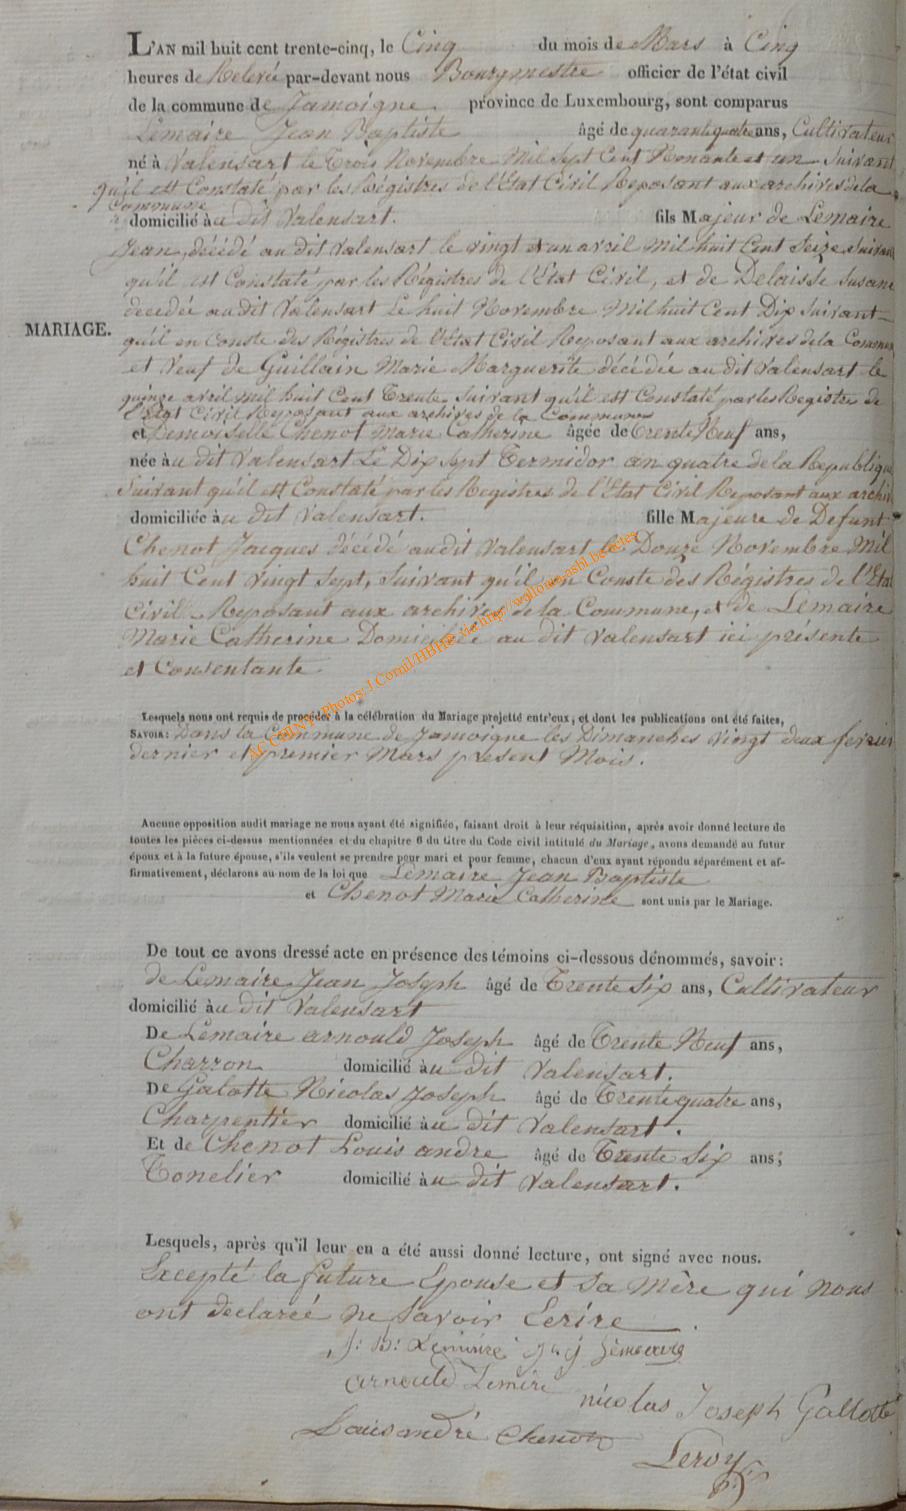 L'AN mil huit cent trente-cinq, le Cinq du mois de Mars à Cinq
heures de Relevé par-devant nous Bourgmestre officier de l'état civil
de la commune de Jamoigne. province de Luxembourg, sont comparus
Lemaire Jean Baptiste âgé de quarante quatre ans, Cultivateur
né à Valensart le Trois Novembre Mil Sept Cent Nonante et un Suivant
qu'il est Constaté par les Régistres de l'Etat Civil Reposant aux archives de la
Commune
domicilié au dit Valensart. fils Majeur de Lemaire
Jean, décédé au dit Valensart le vingt et un avril Mil huit Cent Seize Suivant
qu'il est Constaté par les Régistres de l'Etat Civil, et de Delaisse Susane
decedée au dit Valensart Le huit Novembre Mil huit Cent Dix Suivant
qu'il en Conste des Régistres de l'Etat Civil Reposant aux archives de la Commune
MARIAGE.
et Veuf de Guillain Marie Marguerite décédée au dit Valensart le
quinze avril mil huit Cent Trente Suivant qu'il est Constaté par les Registres de
l'Etat Civil Reposant aux archives de la Commune
et Demoiselle Chenot Marie Catherine âgée de Trente Neuf ans,
née au dit Valensart Le Dix Sept Termidor an quatre de la Republique
Suivant qu'il est Constaté par les Registres de l'Etat Civil Reposant aux archiv
domiciliée au dit Valensart. fille Majeure de Defunt
Chenot Jacques décédé au dit Valensart le Douze Novembre Mil
huit Cent vingt Sept, Suivant qu'il en Conste des Régistres de l'Etat
Civil Reposant aux archives de la Commune, et de Lemaire
Marie Catherine Domiciliée au dit Valensart ici présente
et Consentante
AC CHINY Photos J Cornil/HBHE via http://wallonia-asbl.be/actes
Lesquels nous ont requis de procéder à la célébration du Mariage projetté entr'eux, et dont les publications ont été faites,
SAVOIR: Dans la Commune de Jamoigne les Dimanches vingt deux fevrier
dernier et premier Mars présent Mois.
Aucune opposition audit mariage ne nous ayant été signifiée, faisant droit à leur réquisition, après avoir donné lecture de
toutes les pièces ci-dessus mentionnées et du chapitre 6 du titre du Code civil intitulé du Mariage, avons demandé au futur
époux et à la future épouse, s'ils veulent se prendre pour mari et pour femme, chacun d'eux ayant répondu séparément et af-
firmativement, déclarons au nom de la loi que Lemaire Jean Baptiste
et Chenot Marie Catherine sont unis par le Mariage.
De tout ce avons dressé acte en présence des témoins ci-dessous dénommés, savoir:
de Lemaire Jean Joseph âgé de Trente Six ans, Cultivateur
domicilié au dit Valensart
De Lemaire arnould Joseph âgé de Trente Neuf ans,
Charron domicilié au dit Valensart.
De Galotte Nicolas Joseph âgé de Trente quatre ans,
Charpentier domicilié au dit Valensart.
Et de Chenot Louis andre âgé de Trente Six ans;
Tonelier domicilié au dit Valensart.
Lesquels, après qu'il leur en a été aussi donné lecture, ont signé avec nous.
Excepté la future Epouse et Sa mère qui nous
ont declareé ne Savoir Ecrire.
J: B: Lemaire J. j
arnould Lemire
nicolas Joseph Gallotte
Louis andré Chenot
Leroy